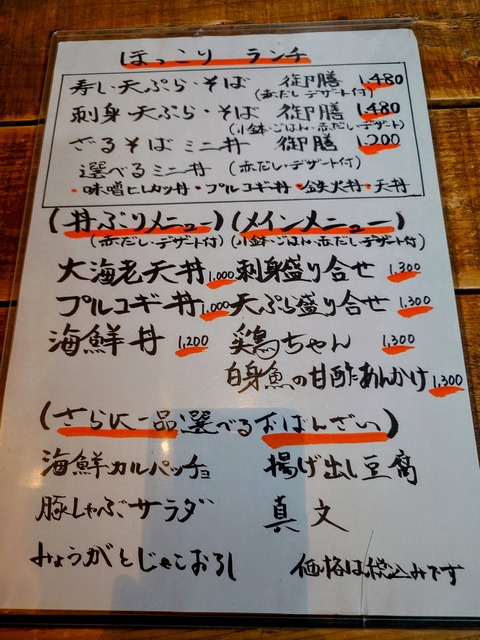 ほっこり ランチ
寿し・天ぷら・そば 御膳 1,480
(赤だし・デザート付)
刺身・天ぷら・そば 御膳 1,480
(小鉢・ごはん・赤だし・デザート)
ざるそば ミニ丼 御膳 1,200
選べるミニ丼 (赤だし・デザート付)
・味噌ヒレカツ丼・プルコギ丼・鉄火丼・天丼
(丼ぶりメニュー) (メインメニュー)
(赤だし・デザート付) (小鉢・ごはん・赤だし・デザート付)
大海老天丼 1,000 刺身盛り合せ 1,300
プルコギ丼 1,000 天ぷら盛り合せ 1,300
海鮮丼 1,200 鶏ちゃん 1,300
白身魚の甘酢あんかけ 1,300
(さらに一品選べるおばんざい)
海鮮カルパッチョ 揚げ出し豆腐
豚しゃぶサラダ 真文
みょうがとじゃこおろし 価格は税込みです